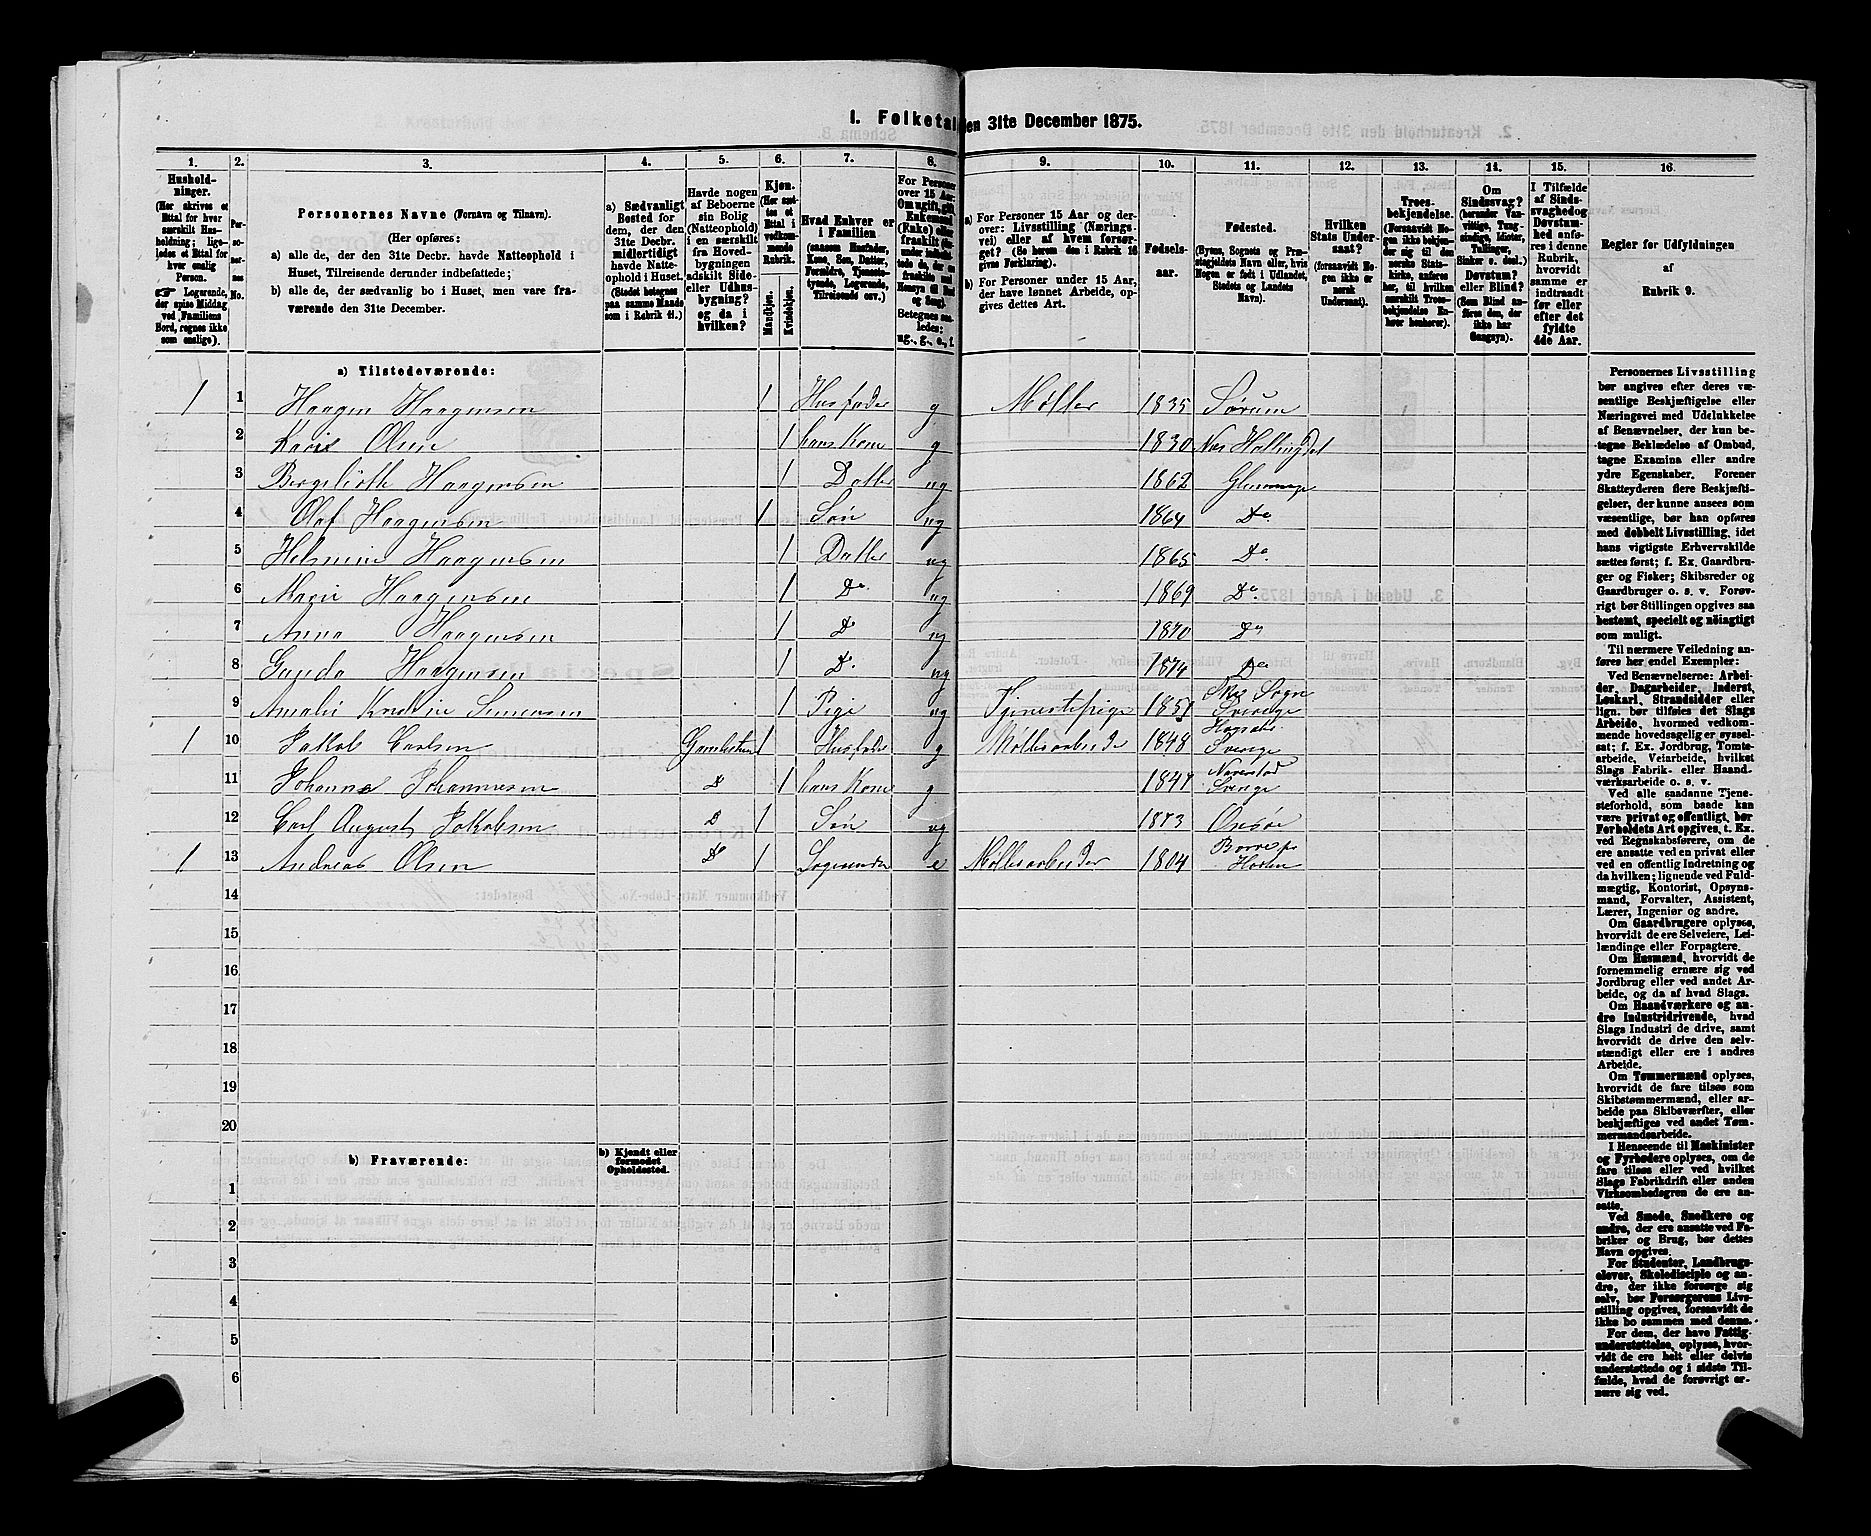 1. Folketal den 31te December 1875.
1.
2.
3.
4.
5.
6.
7.
8.
9.
10.
11.
12.
13.
14.
15.
16.
Hushold-
ninger.
(Her skrives et
Ettal for hver
særskilt Hus-
holdning; lige-
ledes et Ettal for
hver enslig
Person.
☞ Logerende,
der spise Middag
ved Familiens
Bord, regnes ikke
som enslige).
Per-
so-
ner-
nes
No.
Personernes Navne (Fornavn og Tilnavn).
(Her opføres:
a) alle de, der den 31te Decbr. havde Natteophold i
Huset, Tilreisende derunder indbefattede;
b) alle de, der sædvanlig bo i Huset, men vare fra-
værende den 31te December.
a) Sædvanligt
Bosted for
dem, der den
31te Decbr.
midlertidigt
havde Natte-
ophold i Huset.
(Stedet betegnes
paa samme Maade
som i Rubrik 11.)
Havde nogen
af Beboerne
sin Bolig
(Natteophold)
i en særskilt
fra Hoved-
bygningen
adskilt Side-
eller Udhus-
bygning?
og da i
hvilken?
Kjøn.
(Her sæt-
tes et
Ettal i
vedkom-
mende
Rubrik.)
Mandkjøn.
Kvindekjøn.
Hvad Enhver er
i Familien
(saasom Husfader,
Kone, Søn, Datter,
Forældre, Tjeneste-
tyende, Logerende,
Tilreisende osv.)
For Personer
over 15 Aar:
Om ugift, gift,
Enkemand
(Enke) eller
fraskilt
Betegnes saa-
ledes:
ug., g., e., f.
a) For Personer 15 Aar og der-
over: Livsstilling (Nærings-
vei) eller af hvem forsør-
get? (Se herom den i Rubrik 16
givne Forklaring).
b) For Personer under 15 Aar,
der have lønnet Arbeide, op-
gives dettes Art.
Fødsels-
aar.
Fødested.
(Byens, Sognets og Præ-
stegjeldets Navn eller, hvis
Nogen er født i Udlandet,
Stedets og Landets
Navn).
Hvilken
Stats Under-
saat?
(forsaavidt No-
gen ikke er
norsk
Undersaat).
Troes-
bekjendelse.
(Forsaavidt No-
gen ikke bekjen-
der sig til den
norske Stats-
kirke, anføres
her, til hvilken
særskilt Troes-
bekjendelse En-
hver henhører).
Om
Sindssvag?
(herunder Van-
vittige, Tung-
sindige, Idioter,
Tullinger,
Sinker o. desl.)
Døvstum?
eller Blind?
(Som Blind an-
føres den, der
ikke har
Gangsyn).
I Tilfælde
af Sinds-
svaghed og
Døvstum-
hed anfø-
res i denne
Rubrik,
hvorvidt
samme er
indtraadt
før eller
efter det
fyldte
4de Aar.
Regler for Udfyldningen
af
Rubrik 9.
a) Tilstedeværende:
1 1 Haagen Haagensen 1 Husfader g Møller 1835 Sørum
2 Kari Olsen 1 hans Kone g 1830 Nes Hallingdal
3 Bergelioth Haagensen 1 Datter ug 1862 Glemminge
4 Olaf Haagensen 1 Søn ug 1864 Do
5 Helmine Haagensen 1 Datter ug 1865 Do
6 Marie Haagensen 1 Do ug 1869 Do
7 Anna Haagensen 1 Do ug 1870 Do
8 Gunda Haagensen 1 Do ug 1874 Do
9 Amalie Kristine Simensen 1 Pige ug Tjenestepige 1851 Skee Sogn
Sverige
1 10 Jakob Carlsen 1 Husfader g Møllearbeider 1848
Sverige
11 Johanne Johannesen Do 1 hans Kone g 1847 Naverstad
Sverige
12 Carl August Jakobsen Do 1 Søn ug 1873 Onsøe
1 13 Andreas Olsen Do 1 Logerende e Møllearbeider 1804 Borre
14
15
16
17
18
19
20
b) Fraværende:
b) Kjendt eller
formodet
Opholdssted.
1
2
3
4
5
6
Personernes Livsstilling
bør angives efter deres væ-
sentlige Beskjæftigelse eller
Næringsvei med Udelukkelse
af Benævnelser, der kun be-
tegne Beklædelse af Ombud,
tagne Examina eller andre
ydre Egenskaber. Forener
Skatteyderen flere Beskjæfti-
gelser, der kunne ansees som
væsentlige, bør han opføres
med dobbelt Livsstilling, idet
hans vigtigste Erhvervskilde
sættes først; f. Ex. Gaardbru-
ger og Fisker; Skibsreder og
Gaardbruger o. s. v. Forøv-
rigt bør Stillingen opgives saa
bestemt, specielt og nøiagtigt
som muligt.
Til nærmere Veiledning an-
føres her endel Exempler:
Ved Benævnelserne: Arbei-
der, Dagarbeider, Inderst,
Løskarl, Strandsidder eller
lign. bør tilføies det Slags
Arbeide, hvormed vedkom-
mende hovedsagelig er syssel-
sat; f. Ex. Jordbrug, Tomte-
arbeide, Veiarbeide, hvilket
Slags Fabrik- eller Haand-
værksarbeide o. s. v.
Ved alle saadanne Tjene-
steforhold, som baade kan
være privat og offentligt, bør
Forholdets Art opgives, t. Ex.
ved Regnskabsførere, om de
ere ansatte ved en privat eller
ved en offentlig Indretning og
da hvilken; lignende ved Fuld-
mægtig, Kontorist, Opsyns-
mand, Forvalter, Assistent,
Lærer, Ingeniør og andre.
Om Gaardbrugere oplyses,
hvorvidt de ere Selveiere, Lei-
lændinge eller Forpagtere.
Om Husmænd, hvorvidt de
fornemmelig ernære sig ved
Jordbrug eller ved andet Ar-
beide, og da af hvad Slags.
Om Haandværkere og an-
dre Industridrivende, hvad
Slags Industri de drive, samt
hvorvidt de drive den selv-
stændigt eller ere i andres
Arbeide.
Om Tømmermænd oplyses,
hvorvidt de fare tilsøs som
Skibstømmermænd, eller ar-
beide paa Skibsværfter, eller
beskjæftiges ved andet Tøm-
mermandsarbeide.
I Henseende til Maskinister
og Fyrbødere oplyses, om de
fare tilsøs eller ved hvilket
Slags Fabrikdrift eller anden
Virksomhedsgren de ere an-
satte.
Ved Smede, Snedkere og
andre, der ere ansatte ved Fa-
briker og Brug, bør dettes
Navn opgives.
For Studenter, Landbrugs-
elever, Skoledisciple og an-
dre, der ikke forsørge sig
selv, bør Forsørgerens Livs-
stilling opgives, forsaavidt de
ikke bo sammen med denne.
For dem, der have Fattig-
understøttelse, oplyses, hvor-
vidt de ere helt eller delvis
understøttede og i sidste Til-
fælde, hvad de forøvrigt er-
nære sig ved.